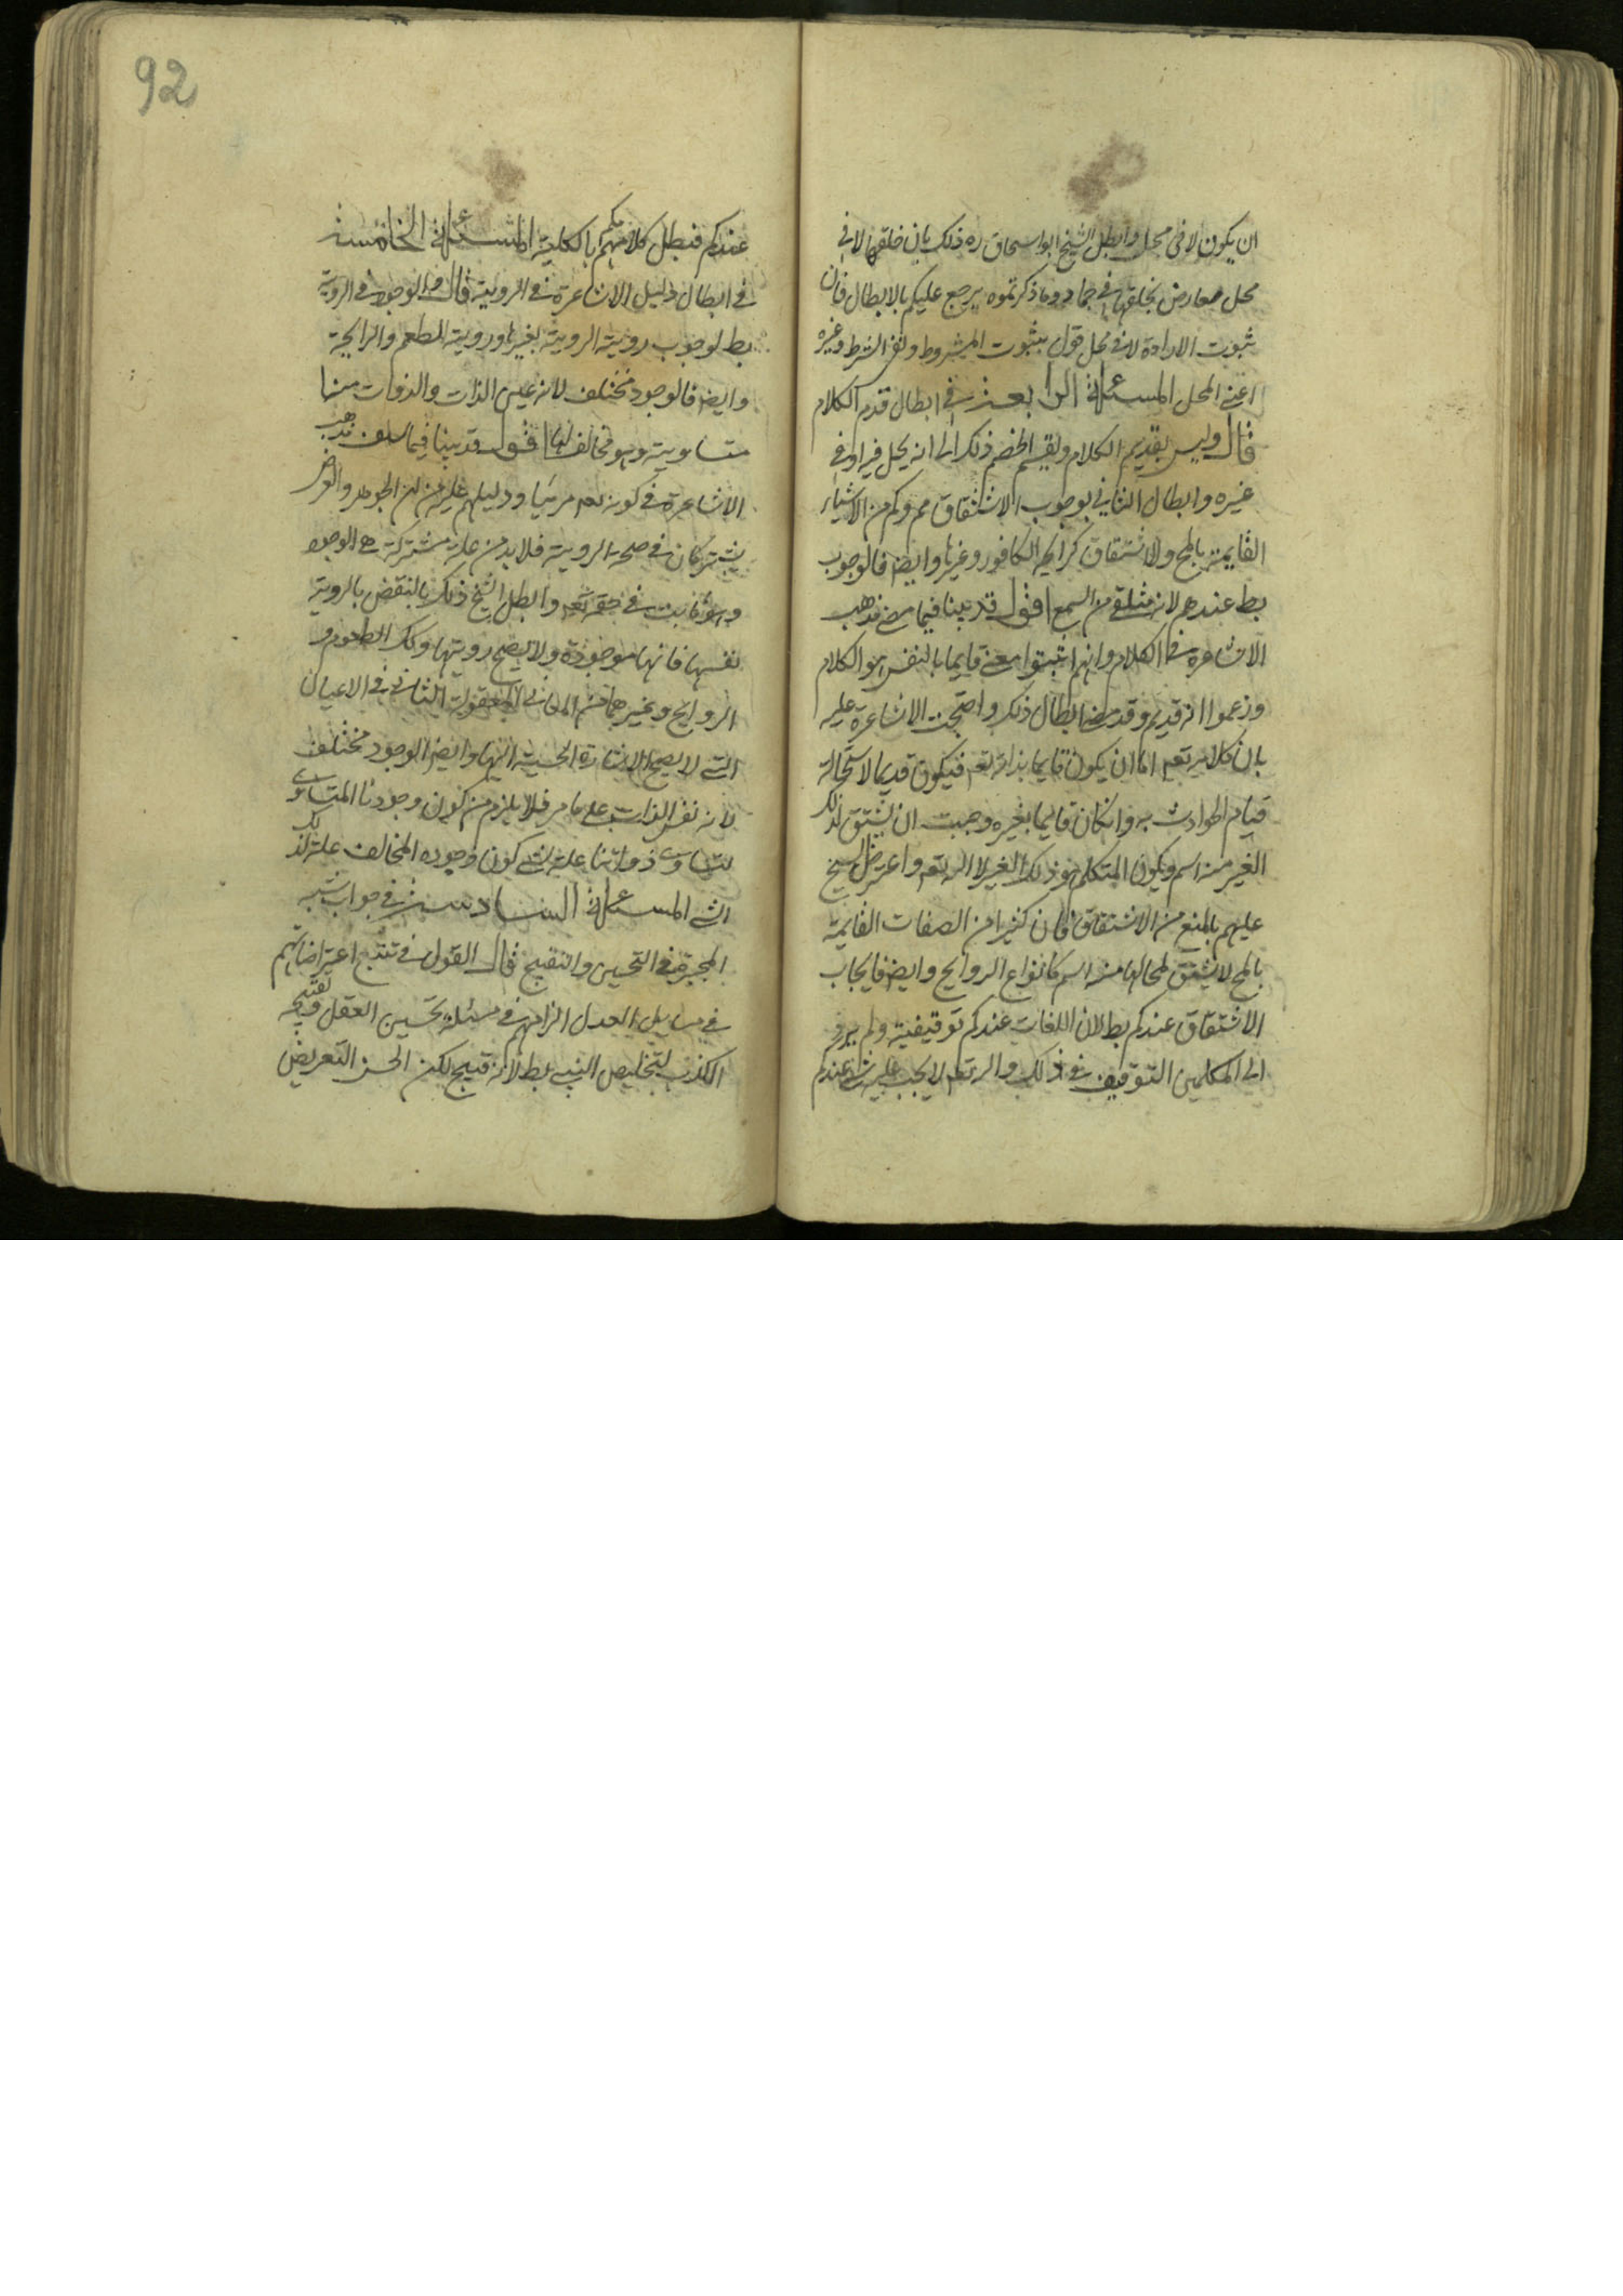 ان يكون لا في محل وابطل الشيخ ابو اسحاق ره ذلك بان خلقها لا في
محل معارض بخلقها في جماد وما ذكرتموه يرجع عليكم بالابطال فان
ثبوت الارادة لا في محل قول بثبوت المشروط ونفى الشرط وغيره
اعنى المحل المسئلة الرابعة في ابطال قدم الكلام
قال وليس بقديم الكلام وتقسيم الخصم ذلك الى انه يحل فيه او في
غيره وابطال الثاني بوجوب الاشتقاق مم وكم من الاشياء
القايمة بالمح ولا اشتقاق كرايحة الكافور وغيرها وايضا فالوجوب
بط عندهم لانه متلقى من السمع اقول قد بينا فيما مضى مذهب
الاشاعرة في الكلام وانهم اثبتوا معنى قايما بالنفس هو الكلام
وزعموا انه قديم وقد مضى ابطال ذلك واحتجت الاشاعرة عليه
بان كلامه تعم اما ان يكون قايما بذاته تعم فيكون قديما لاستحالة
قيام الحوادث به وان كان قايما بغيره وجبت ان يشتق لذلك
الغير منه اسم ويكون المتكلم هو ذلك الغير لا الله تعم واعترض الشيخ
عليهم بالمنع من الاشتقاق فان كثيرا من الصفات القايمة
بالمح لا يشتق لمحالها منه اسم كانواع الروايح وايضا فايجاب
الاشتقاق عندكم بط لان اللغات عندكم توقيفية ولم يرد
الى المكلمين التوقيف في ذلك والله تعم لا يجب عليه شئ عندكم
92
عندكم فبطل كلامكم بالكلية المسئلة الخامسة
في ابطال دليل الاشاعرة في الروية قال والوجود في الروية
بط لوجوب روية الروية بغيرها وروية الطعم والرايحة
وايضا فالوجود مختلف لانه عين الذات والذوات منا
متساوية وهو مخالف لها اقول قد بينا فيما سلف مذهب
الاشاعرة في كونه تعم مرئيا ودليلهم عليه من ان الجوهر والعرض
يشتركان في صحة الروية فلا بد من علة مشتركة هى الوجود
وهو ثابت في حقه تعم وابطل الشيخ ذلك بالنقض بالروية
نفسها فانها موجودة ولا يصح رويتها وكك الطعوم و
الروايح وغيرهما من المعانى المعقولة الثابتة في الاعيان
التى لا يصح الاشارة الحسية اليها وايضا الوجود مختلف
لانه نفس الذات على ما مر فلا يلزم من كون وجودنا المتساوى
لتساوى ذواتنا علة لشئ كون وجوده المخالف علة لذلك
الشئ المسئلة السادسة في جواب شبه
المجبرة في التحسين والتقبيح قال القول في تتبع اعتراضاتهم
في مسايل العدل الزامهم في مسئلة تحسين العقل وتقبيحه
الكذب لتخليص النبى بط لانه قبيح لكن الحسن التعريض